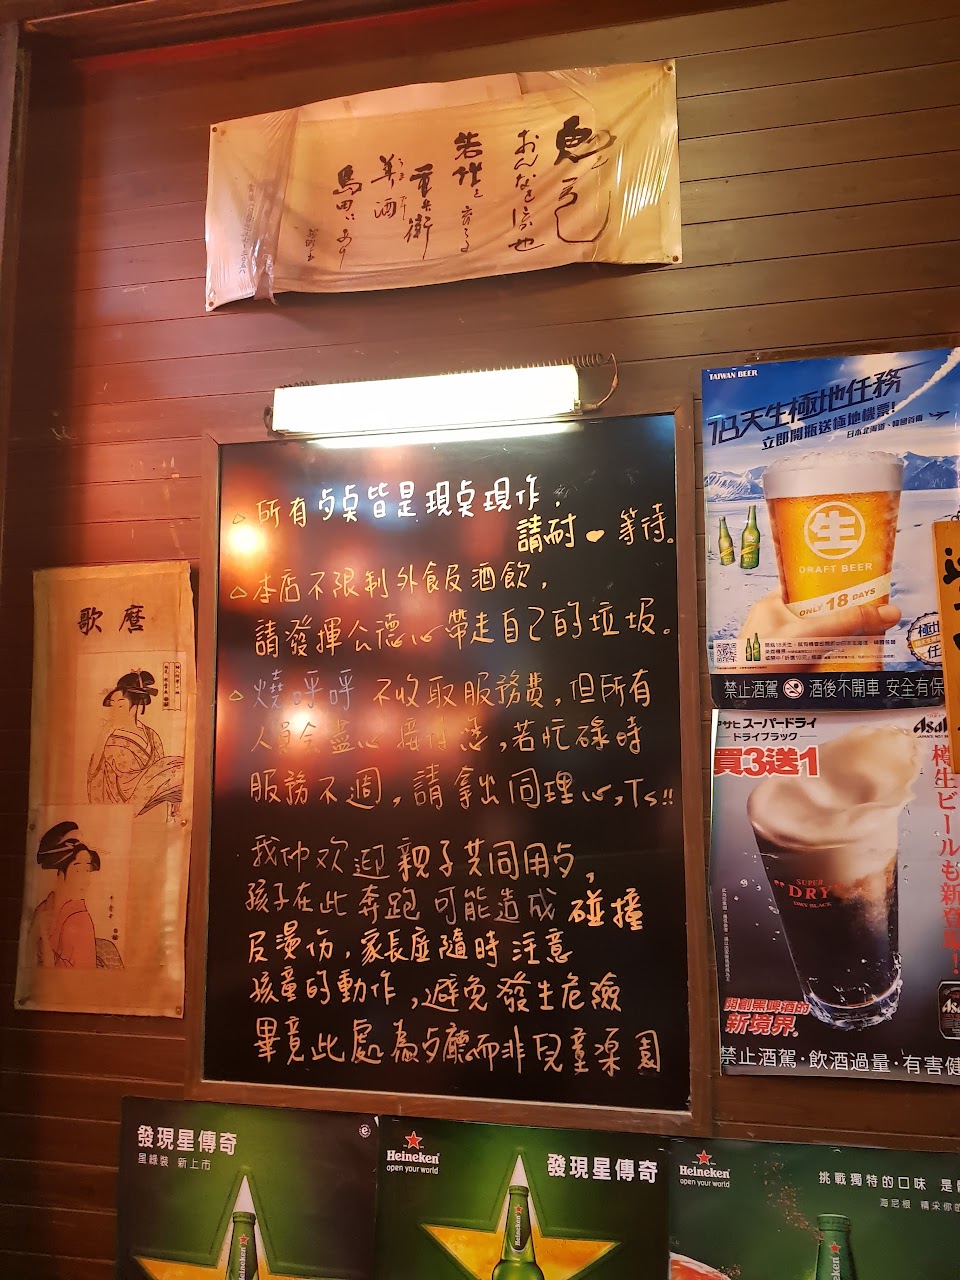 おんなを
美酒
TAIWAN BEER
18天生極地任務
立即開瓶送極地機票!
日本北海道、韓國首爾
生
DRAFT BEER
ONLY 18 DAYS
禁止酒駕 酒後不開車 安全有保
△所有歺桌皆是現桌現作,
請耐❤等待。
△本店不限制外食及酒飲,
請發揮公德心帶走自己的垃圾。
△燒呼呼 不收取服務費,但所有
人員会盡心接待您,若忙碌時
服務不週,請拿出同理心,Ts!!
我们欢迎親子共同用歺,
孩子在此奔跑可能造成碰撞
及燙伤,家長應隨時注意
孩童的動作,避免發生危險
畢竟此處為歺廳而非兒童楽園
歌麿
アサヒ スーパードライ
ードライブラックー
買3送1
Asah
樽生ビールも新登場!
SUPER
"DRY"
DRY BLACK
開創黑啤酒的
新境界。
禁止酒駕・飲酒過量・有害健
發現星傳奇
星綠裝 新上市
Heineken
open your world
發現星傳奇
Heineken
open your world
挑戰獨特的口味 是
海尼根 精采你
Heineken
Heineken
Heineken